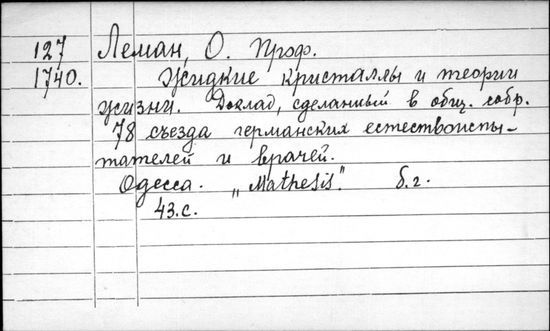 127 Леман, О. Проф.
1740. Жидкие кристаллы и теории
жизни. Доклад, сделанный в общ. собр.
78 съезда германских естествоиспы-
тателей и врачей.
Одесса. „Mathesis“. б.г.
43.с.